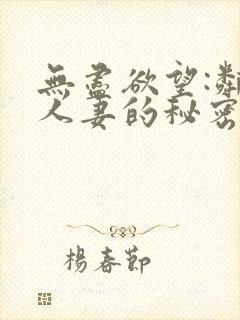 無盡欲望:鄰
人妻的秘密
楊春節